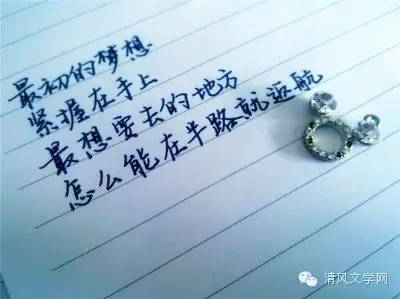 最初的梦想
紧握在手上
最想要去的地方
怎么能在半路就返航
清风文学网